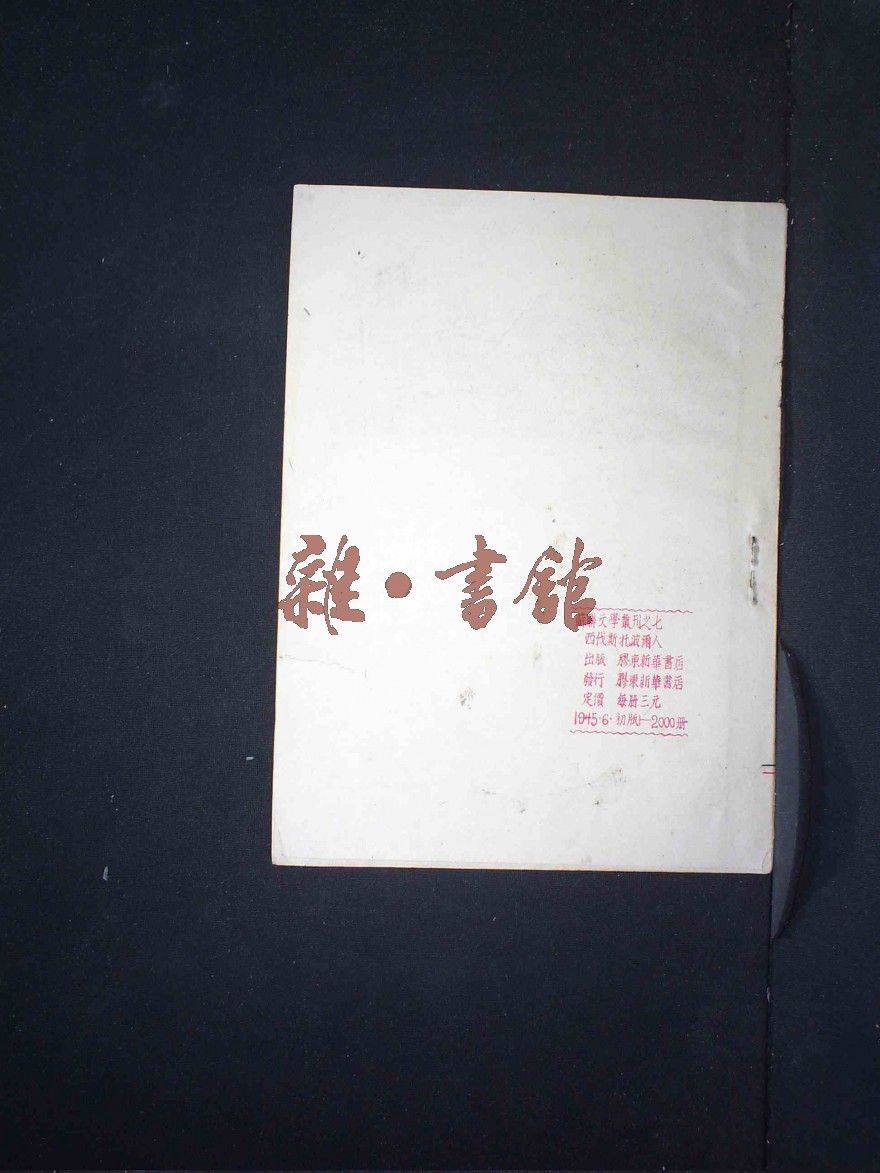 雜·書館
蘇聯文學叢刊之七
西伐斯托波爾人
出版 膠東新華書店
發行 膠東新華書店
定價 每册三元
1945·6·初版1—2000册